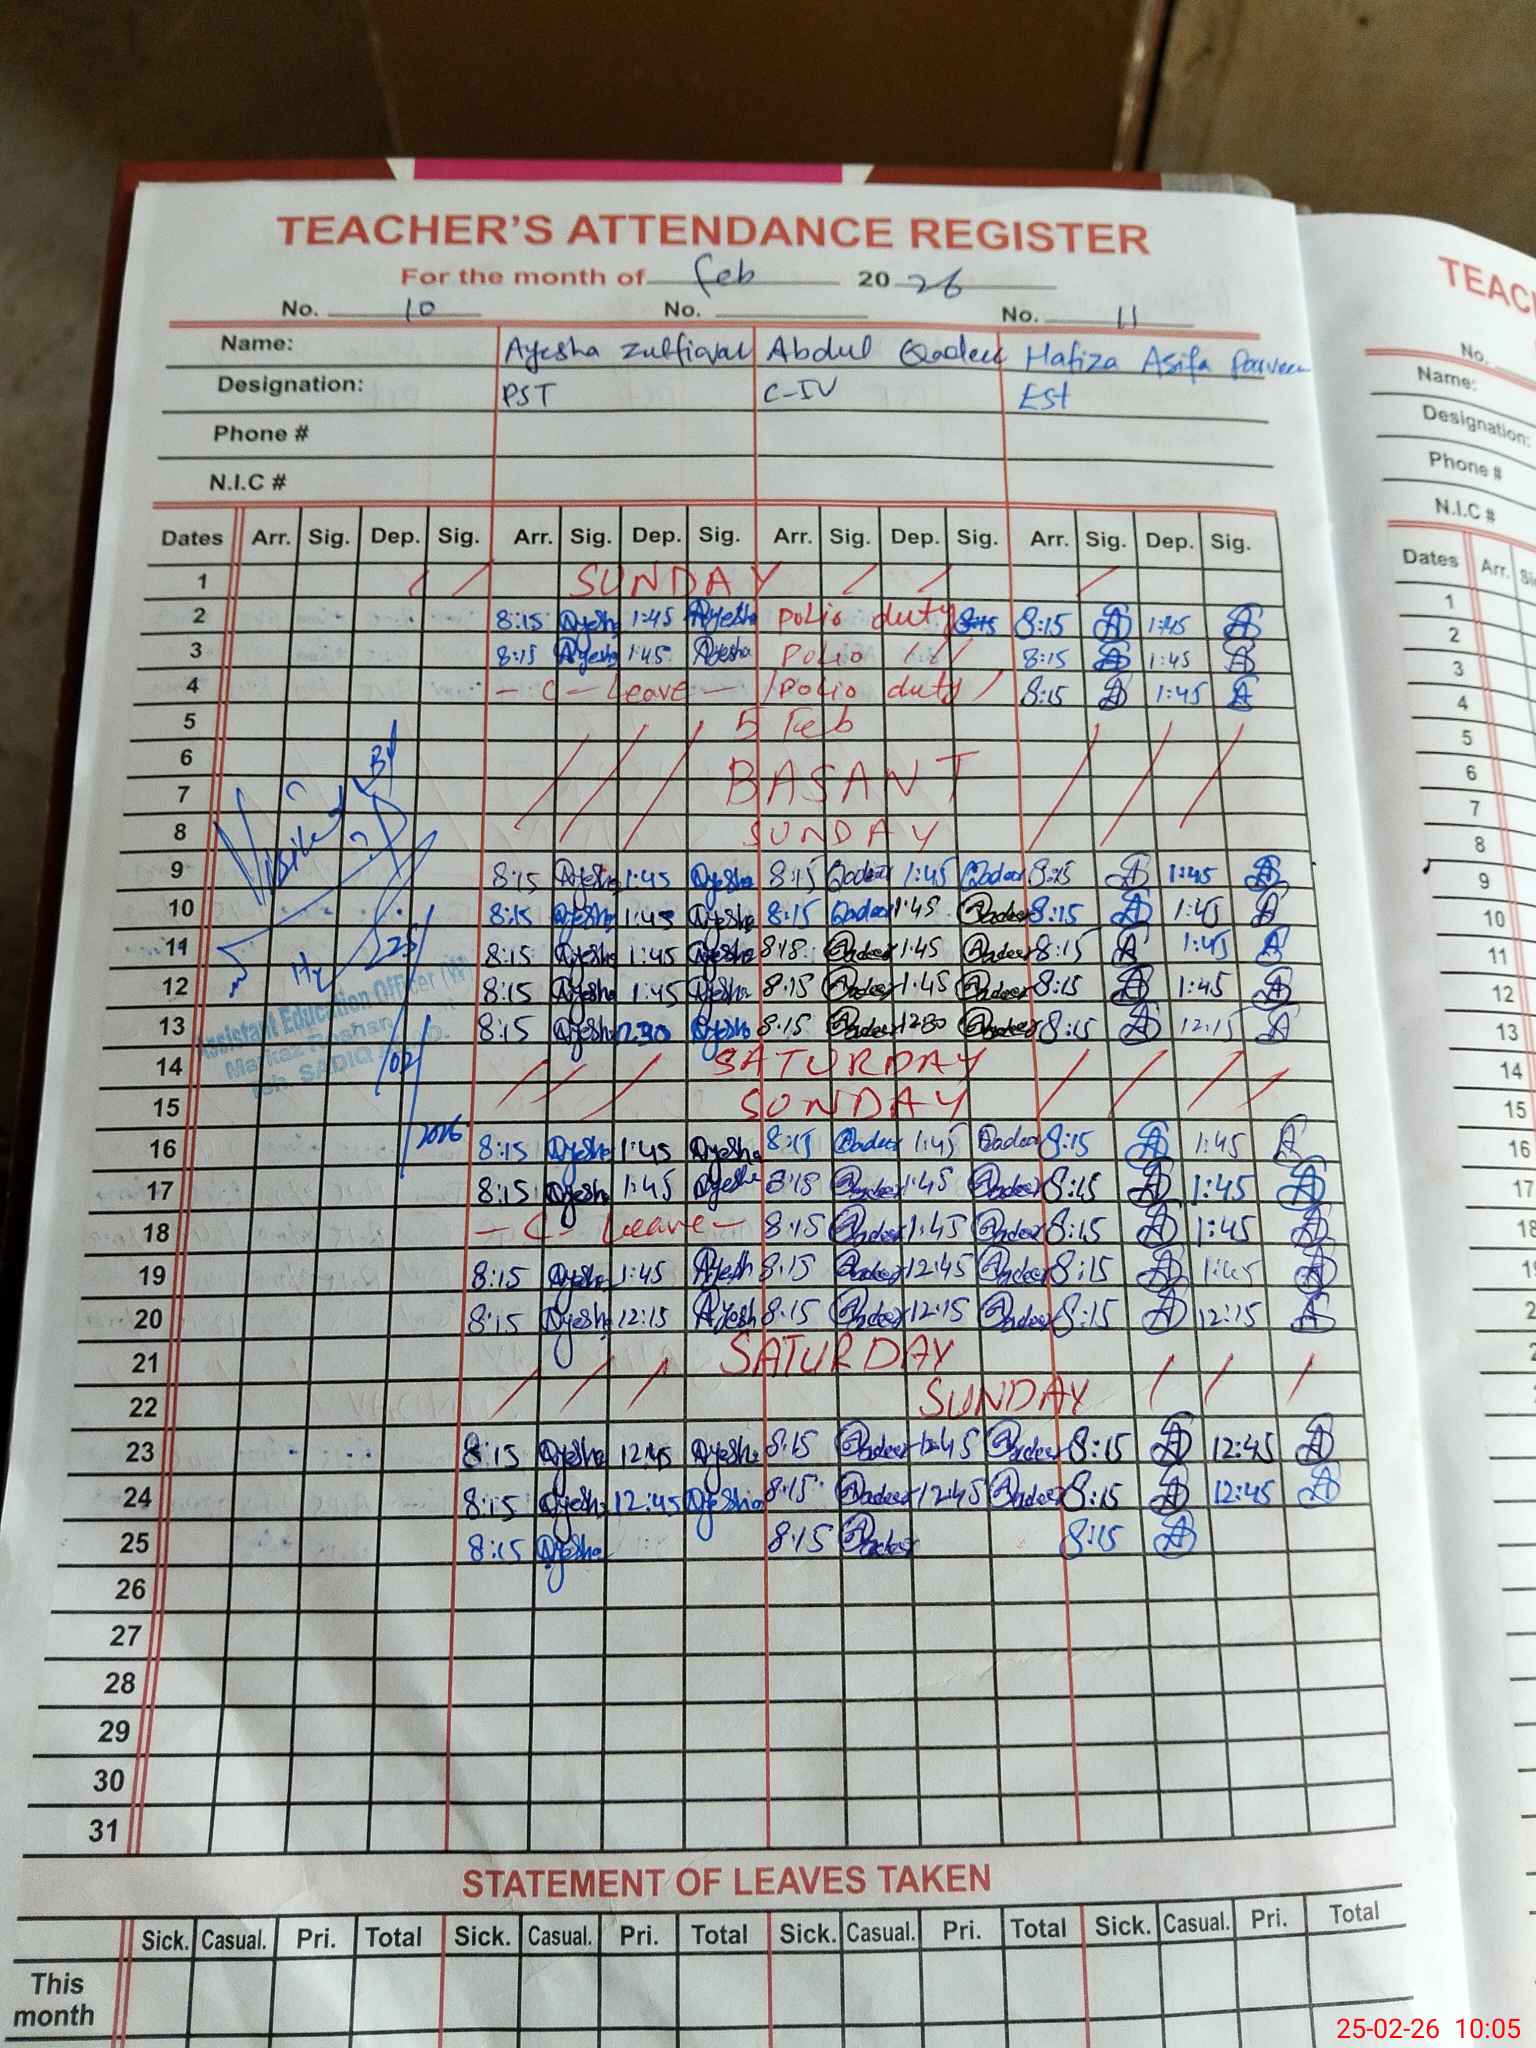 TEACHER'S ATTENDANCE REGISTER
For the month of Feb 2026
No. 10 No. No. 11
Name: Ayesha Zulfiqar Abdul Qadeer Hafiza Asifa Parveen
Designation: PST C-IV Est
Phone #
N.I.C #
Dates Arr. Sig. Dep. Sig. Arr. Sig. Dep. Sig. Arr. Sig. Dep. Sig. Arr. Sig. Dep. Sig.
1 SUNDAY
2 8:15 Ayesha 1:45 Ayesha Polio duty 8:15 A 1:45 A
3 8:15 Ayesha 1:45 Ayesha Polio 8:15 A 1:45 A
4 - C - Leave - Polio duty 8:15 A 1:45 A
5 5 Feb
6
7 BASANT
8 SUNDAY
9 8:15 Ayesha 1:45 Ayesha 8:15 Qadeer 1:45 Qadeer 8:15 A 1:45 A
10 8:15 Ayesha 1:45 Ayesha 8:15 Qadeer 1:45 Qadeer 8:15 A 1:45 A
11 8:15 Ayesha 1:45 Ayesha 8:15 Qadeer 1:45 Qadeer 8:15 A 1:45 A
12 8:15 Ayesha 1:45 Ayesha 8:15 Qadeer 1:45 Qadeer 8:15 A 1:45 A
13 8:15 Ayesha 12:30 Ayesha 8:15 Qadeer 12:30 Qadeer 8:15 A 12:15 A
14 SATURDAY
15 SUNDAY
16 8:15 Ayesha 1:45 Ayesha 8:15 Qadeer 1:45 Qadeer 8:15 A 1:45 A
17 8:15 Ayesha 1:45 Ayesha 8:15 Qadeer 1:45 Qadeer 8:15 A 1:45 A
18 - C - Leave - 8:15 Qadeer 1:45 Qadeer 8:15 A 1:45 A
19 8:15 Ayesha 1:45 Ayesh 8:15 Qadeer 12:45 Qadeer 8:15 A 1:45 A
20 8:15 Ayesha 12:15 Ayesh 8:15 Qadeer 12:15 Qadeer 8:15 A 12:15 A
21 SATURDAY
22 SUNDAY
23 8:15 Ayesha 12:45 Ayesha 8:15 Qadeer 12:45 Qadeer 8:15 A 12:45 A
24 8:15 Ayesha 12:45 Ayesha 8:15 Qadeer 12:45 Qadeer 8:15 A 12:45 A
25 8:15 Ayesha 8:15 Qadeer 8:15 A
26
27
28
29
30
31
Visited By
25/02/2026
Assistant Education Officer (W)
Markaz Roshan
Teh. SADIQ
STATEMENT OF LEAVES TAKEN
Sick. Casual. Pri. Total Sick. Casual. Pri. Total Sick. Casual. Pri. Total Sick. Casual. Pri. Total
This month
No.
Name:
Designation:
Phone #
N.I.C #
Dates Arr.
1
2
3
4
5
6
7
8
9
10
11
12
13
14
15
16
17
25-02-26 10:05